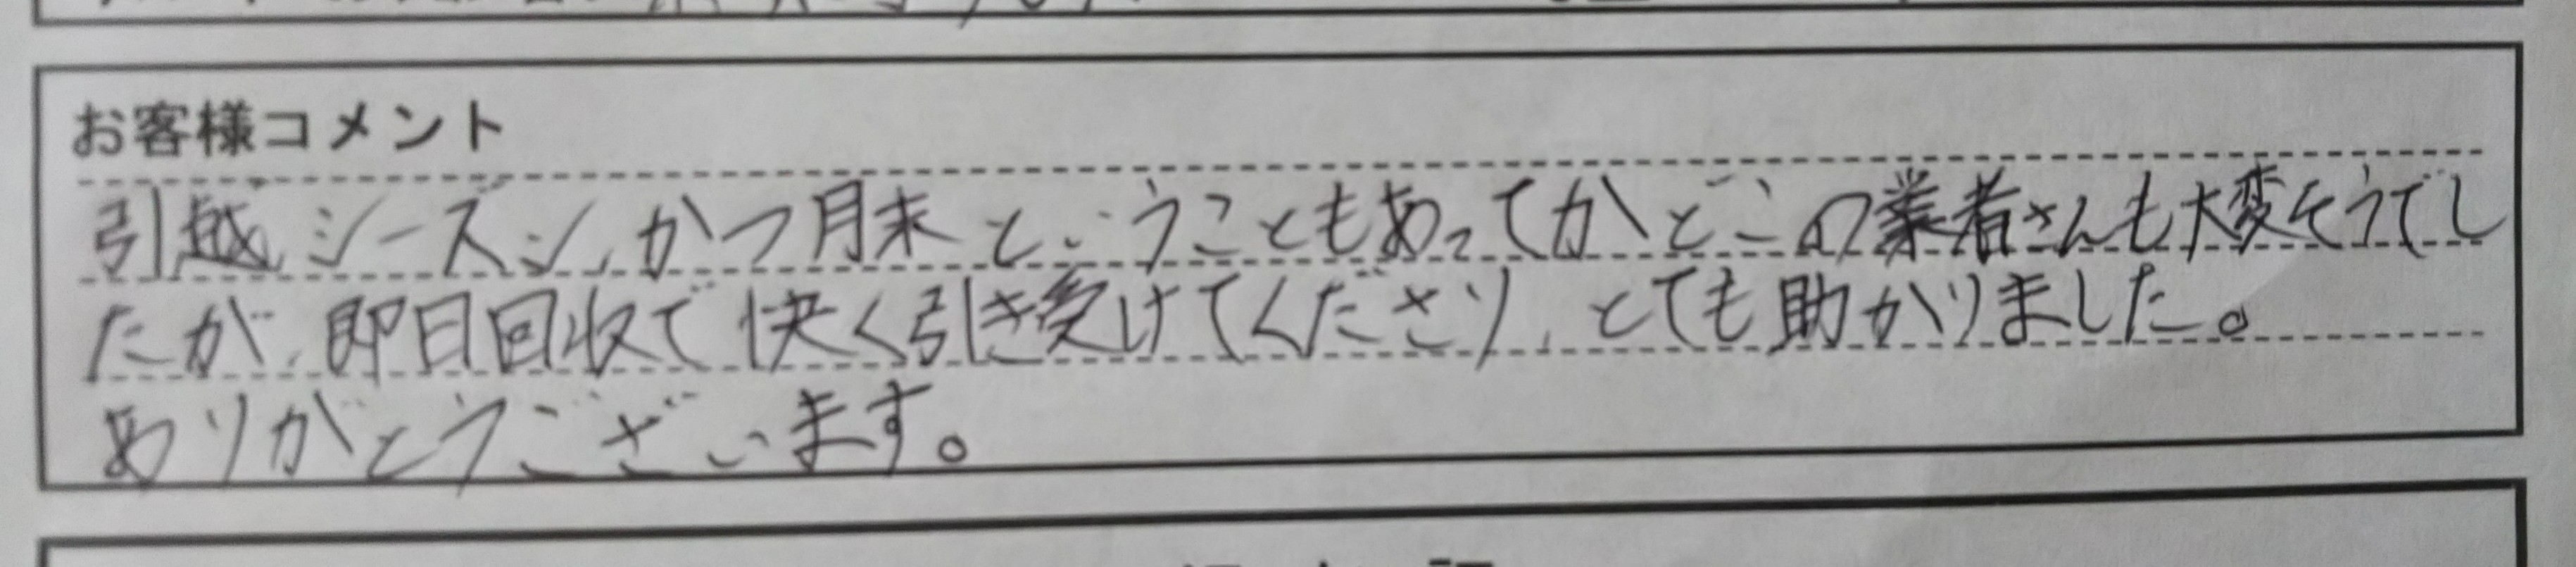 お客様コメント
引越シーズン、かつ月末ということもあってかどこの業者さんも大変そうでし
たが、即日回収で快く引き受けてくださり、とても助かりました。
ありがとうございます。